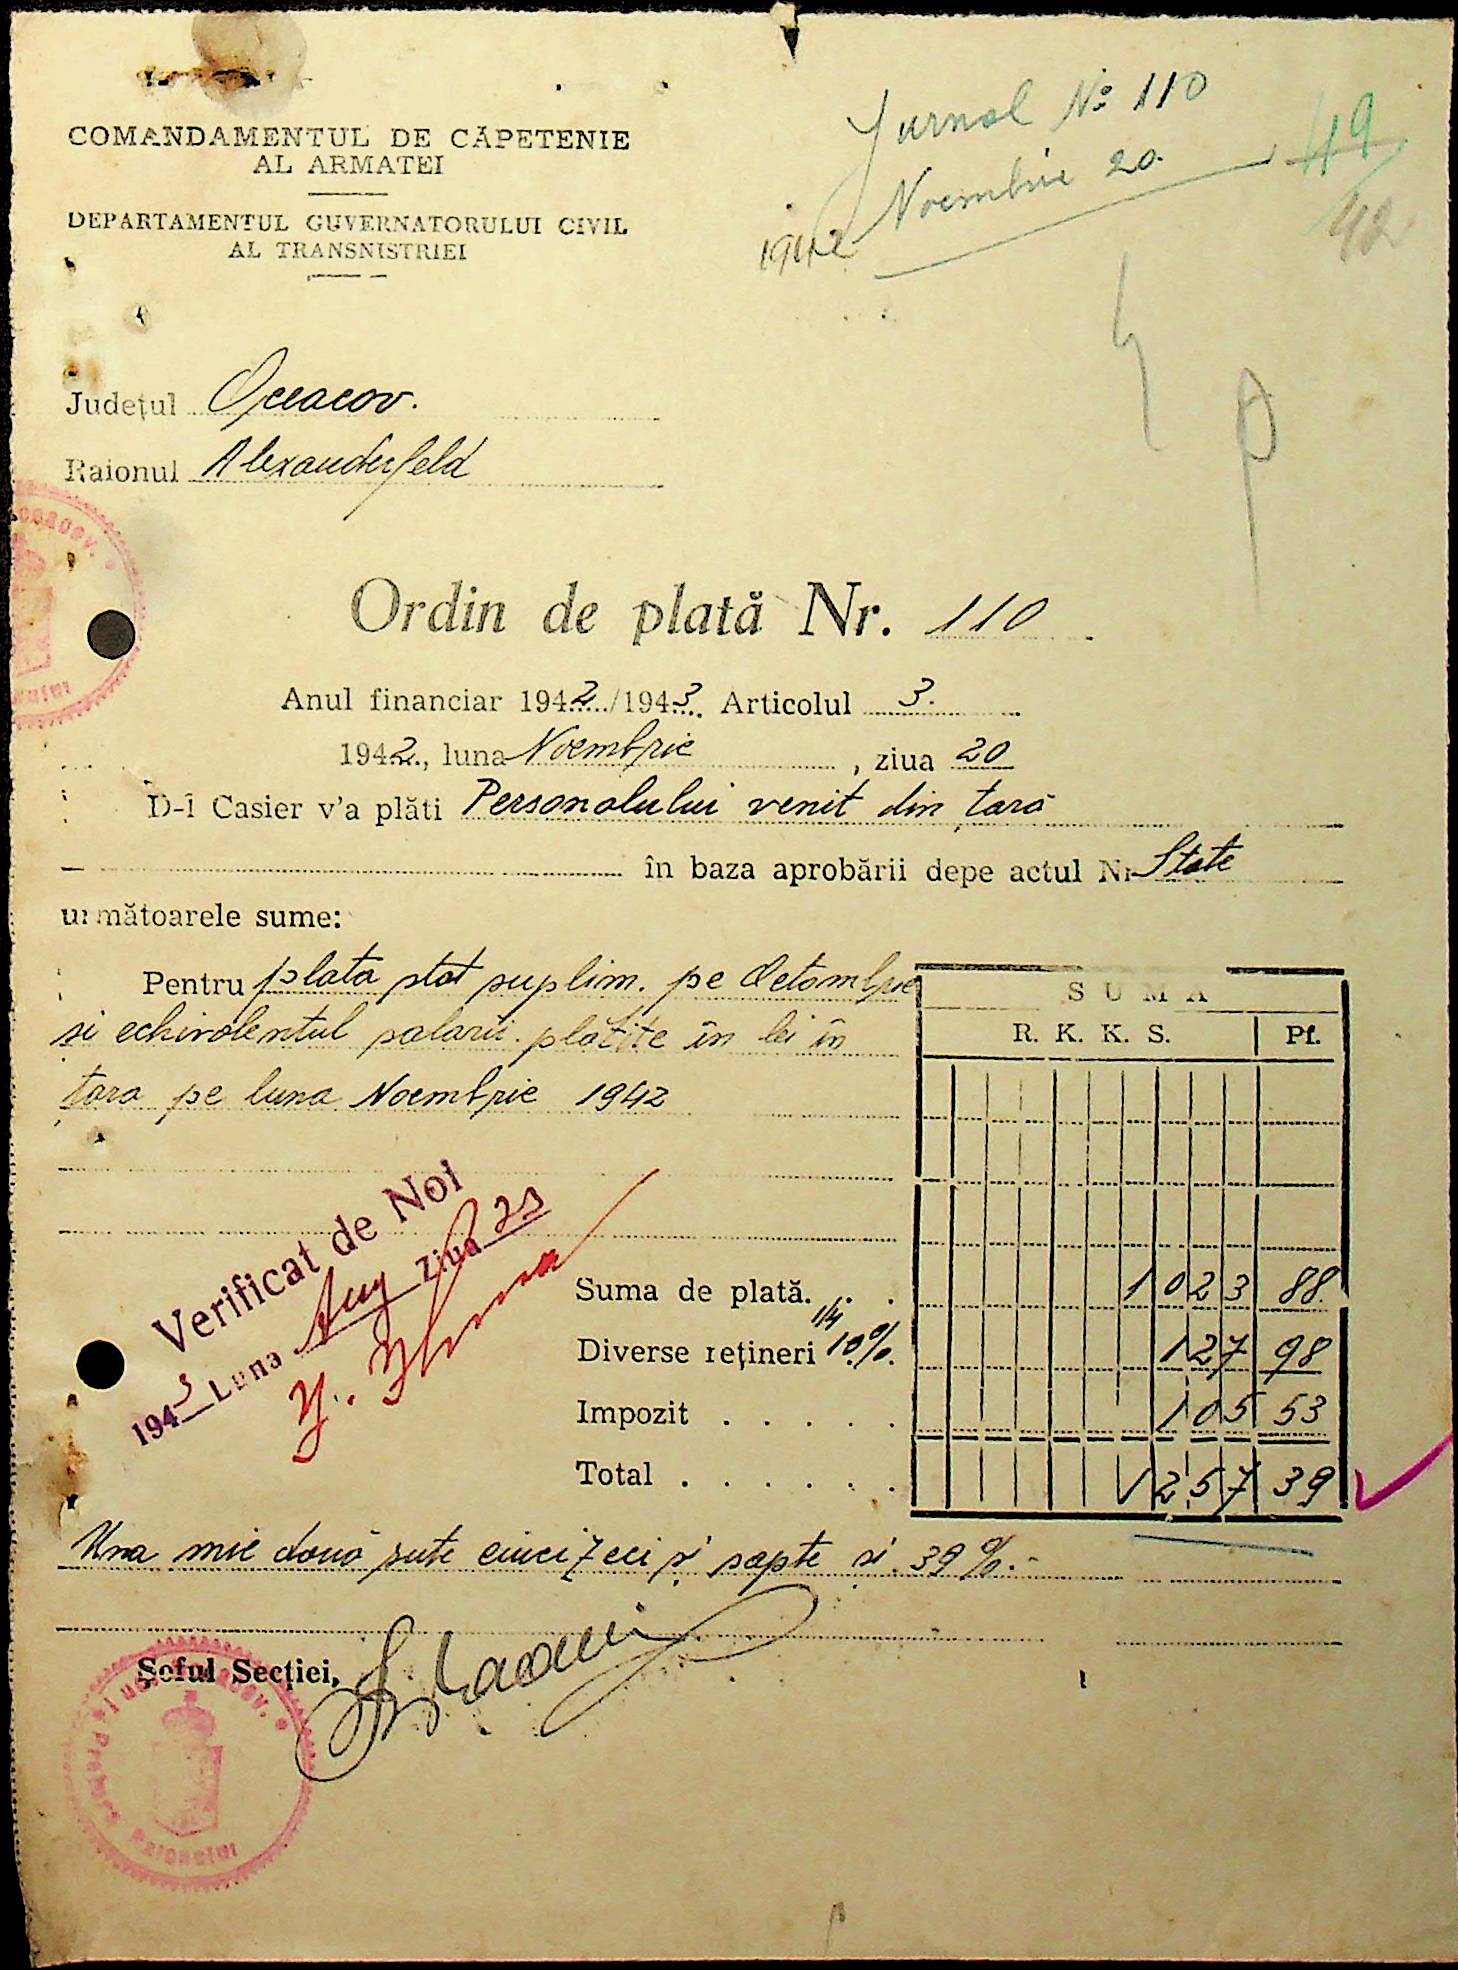 COMANDAMENTUL DE CĂPETENIE
AL ARMATEI
DEPARTAMENTUL GUVERNATORULUI CIVIL
AL TRANSNISTRIEI
Jurnal No 110
1942 Noembrie 20.
49
42
Județul Oceacov.
Raionul Alexanderfeld
Ordin de plată Nr. 110
Anul financiar 1942/1943. Articolul 3.
1942., luna Noembrie, ziua 20
D-l Casier v'a plăti Personalului venit din țară
în baza aprobării depe actul Nr State
următoarele sume:
Pentru plata stat suplim. pe Octombrie
si echivalentul salarii plătite în lei în
țara pe luna Noembrie 1942
SUMA
R. K. K. S. Pf.
Verificat de Noi
1943 Luna Aug ziua 23
Suma de plată. . . 1023 88
Diverse rețineri 1/4 10%. 127 98
Impozit . . . . . 105 53
Total . . . . . . 1257 39
Una mie două sute cincizeci și sapte si 39%.-
Șeful Secției,
Raionului